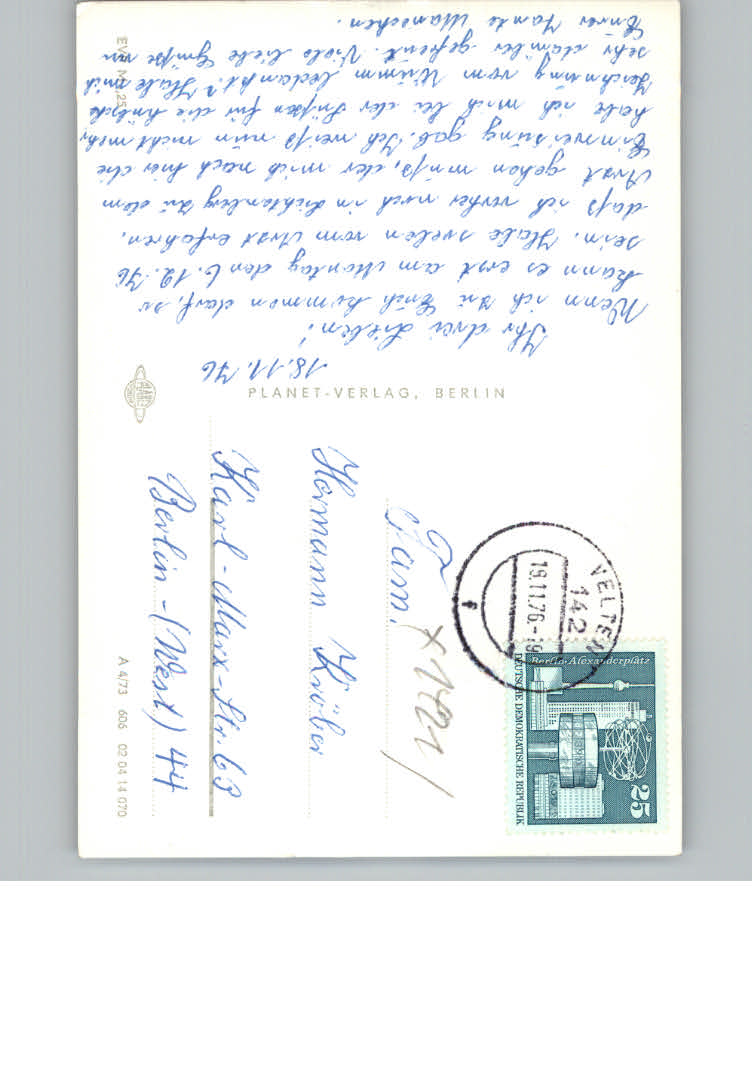 18.11.76
Ihr drei Lieben!
Wenn ich zu Euch kommen darf, so
kann es erst am Montag den 6.12.76
sein. Habe soeben vom Arzt erfahren,
daß ich vorher noch in Lichtenberg zu dem
Arzt gehen muß, der mich nach hier die
Einweisung gab. Ich weiß nun nicht mehr,
habe ich mich bei der Süßen für die hübsche
Zeichnung vom Wumm bedankt? Habe mich
sehr darüber gefreut. Viele liebe Grüße von
Eurer Tante Manschen.
EVP M 0,25
PLANET-VERLAG, BERLIN
A 4/73 606 02 04 14 070
Fam.
Hermann Kröber
Karl-Marx-Str. 63
Berlin-(West) 44
VELTEN
142
19.11.76.-19
f
Berlin-Alexanderplatz
DEUTSCHE DEMOKRATISCHE REPUBLIK
25